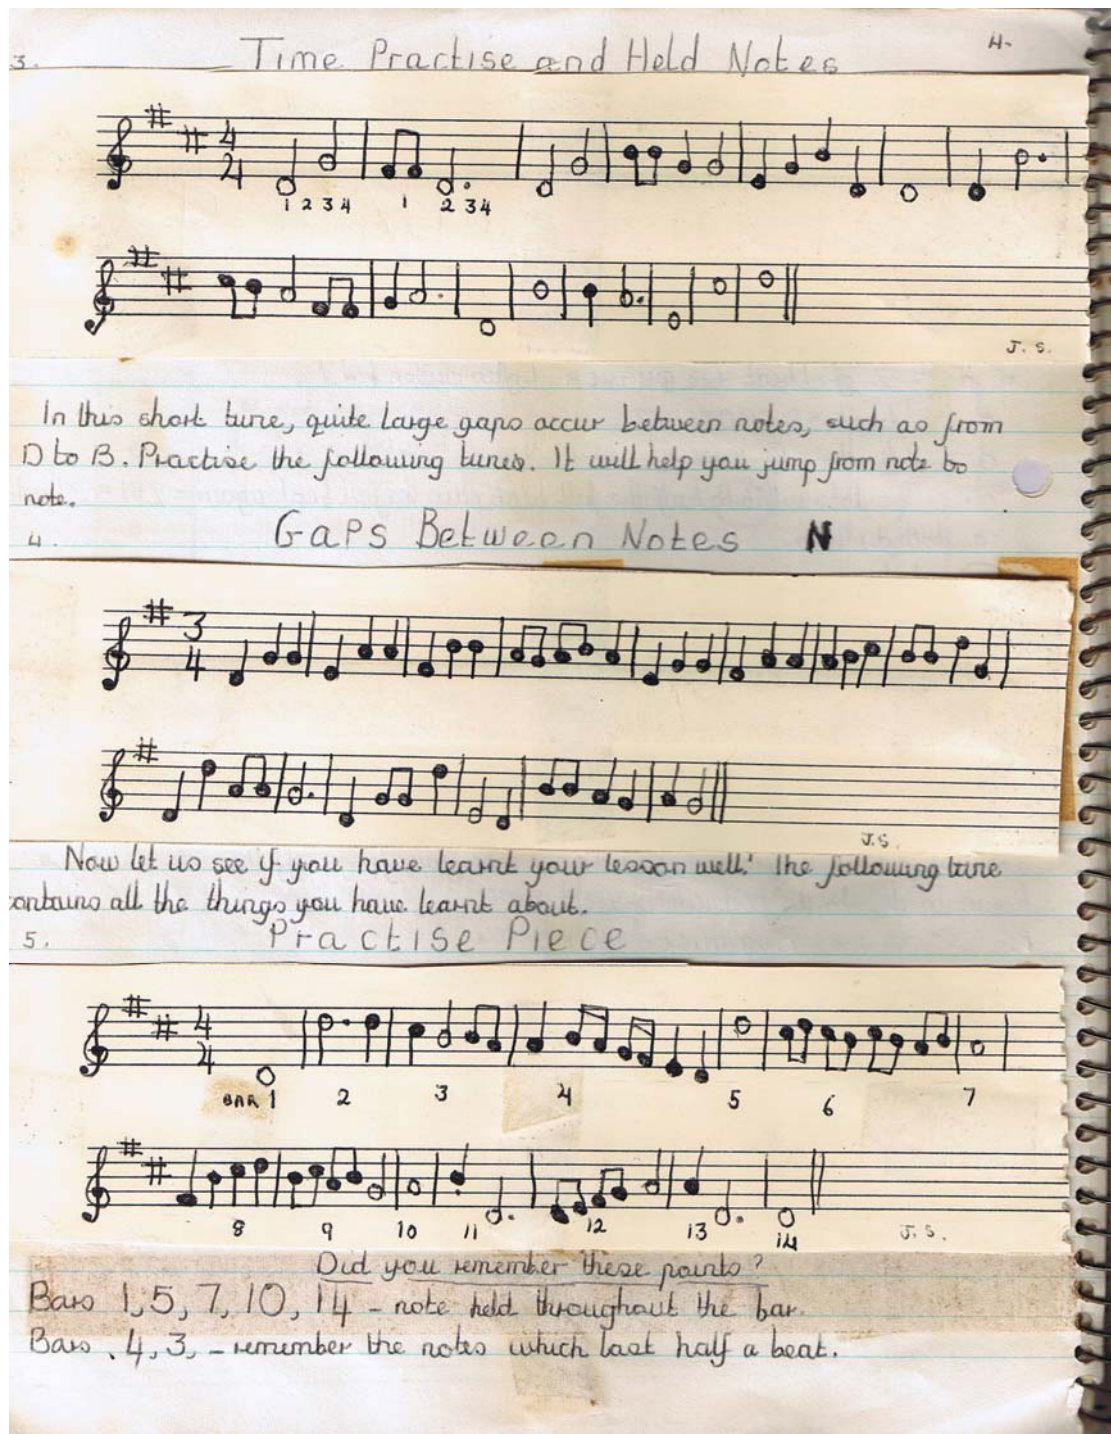 3. Time Practise and Held Notes 4.
4
4
1 2 3 4 1 2 3 4
J. S.
In this short tune, quite large gaps occur between notes, such as from
D to B. Practise the following tunes. It will help you jump from note to
note.
4. Gaps Between Notes N
3
4
J.S.
Now let us see if you have learnt your lesson well! The following tune
contains all the things you have learnt about.
5. Practise Piece
4
4
BAR 1 2 3 4 5 6 7
8 9 10 11 12 13 14
J. S.
Did you remember these points?
Bars 1, 5, 7, 10, 14 - note held throughout the bar.
Bars . 4, 3, - remember the notes which last half a beat.